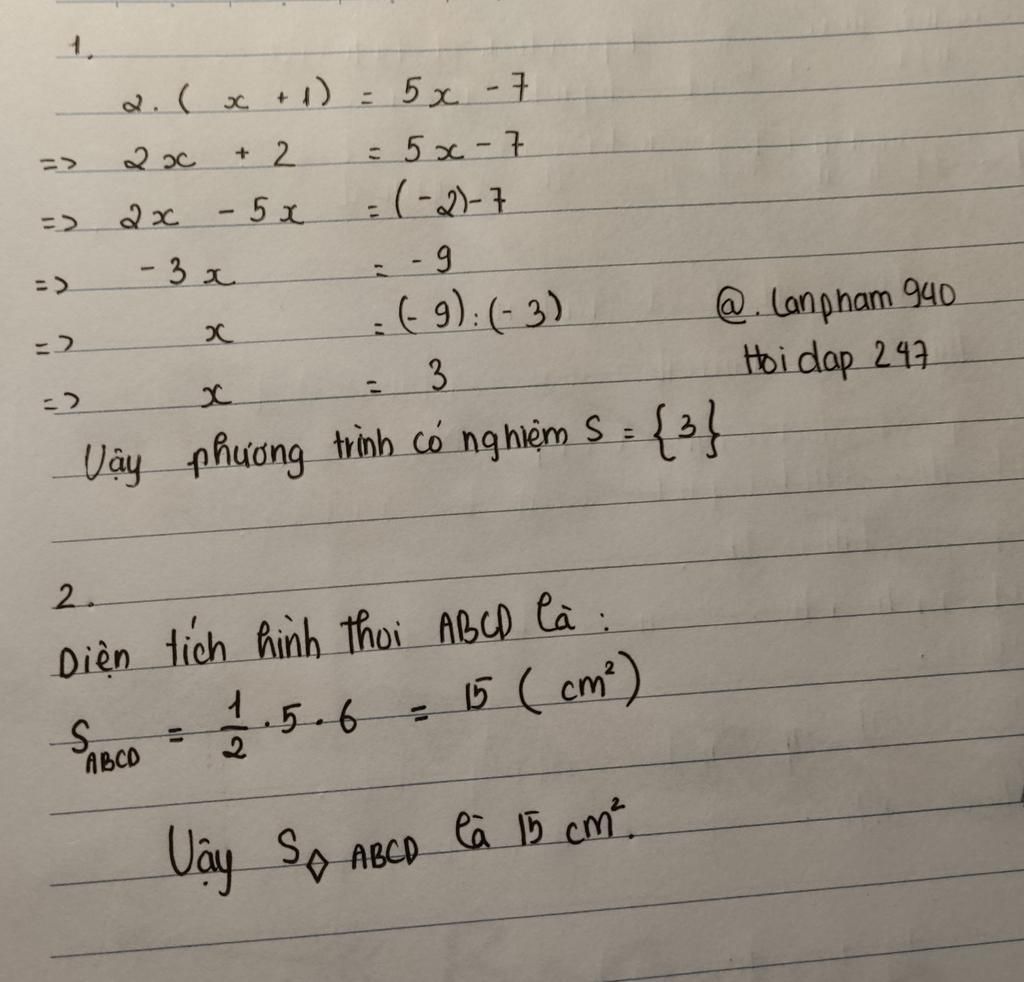 1.
2.(x + 1) = 5x - 7
=> 2x + 2 = 5x - 7
=> 2x - 5x = (-2)-7
=> -3x = -9
=> x = (-9):(-3)
@.lanpham 940
=> x = 3
Hoi dap 247
Vậy phương trình có nghiệm S = {3}
2.
Diện tích hình thoi ABCD là :
S_ABCD = 1/2 . 5 . 6 = 15 ( cm²)
Vậy S◊ ABCD là 15 cm².